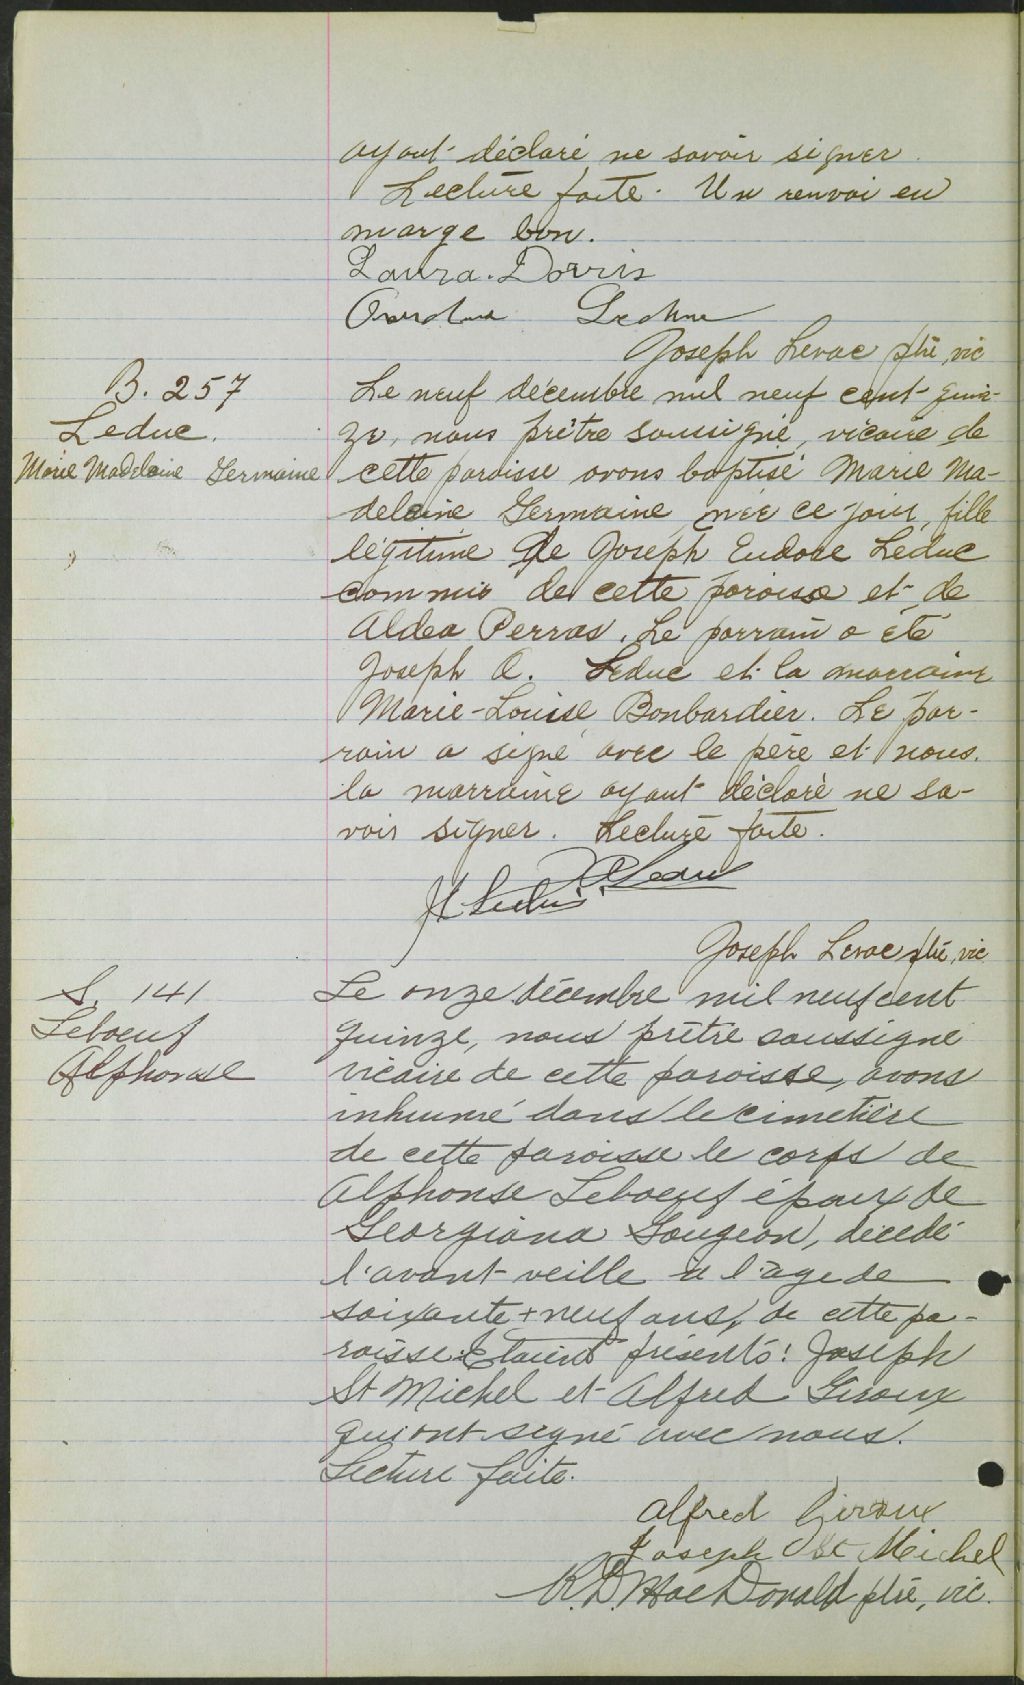 ayant déclaré ne savoir signer.
Lecture faite. Un renvoi en
marge bon.
Laura Dorris
Joseph Levac ptre, vic
B. 257
Leduc.
Marie Madeleine Germaine
Le neuf décembre mil neuf cent quin-
ze, nous prêtre soussigné, vicaire de
cette paroisse avons baptisé Marie Ma-
deleine Germaine née ce jour, fille
légitime de Joseph Eudore Leduc
commis de cette paroisse et de
Aldea Perras. Le parrain a été
Joseph O. Leduc et la marraine
Marie-Louise Bonbardier. Le par-
rain a signé avec le père et nous.
la marraine ayant déclaré ne sa-
voir signer. Lecture faite.
Joseph Levac ptre, vic
S. 141
Leboeuf
Alphonse
Le onze décembre mil neuf cent
quinze, nous prêtre soussigné
vicaire de cette paroisse, avons
inhumé dans le cimetière
de cette paroisse le corps de
Alphonse Leboeuf époux de
Georgiana Gougeon, décédé
l'avant veille à l'age de
soixante + neuf ans, de cette pa-
roisse. Etaient présents: Joseph
St Michel et Alfred Giroux
qui ont signé avec nous.
Lecture faite.
Alfred Giroux
Joseph St Michel
R.D. MacDonald ptre, vic.